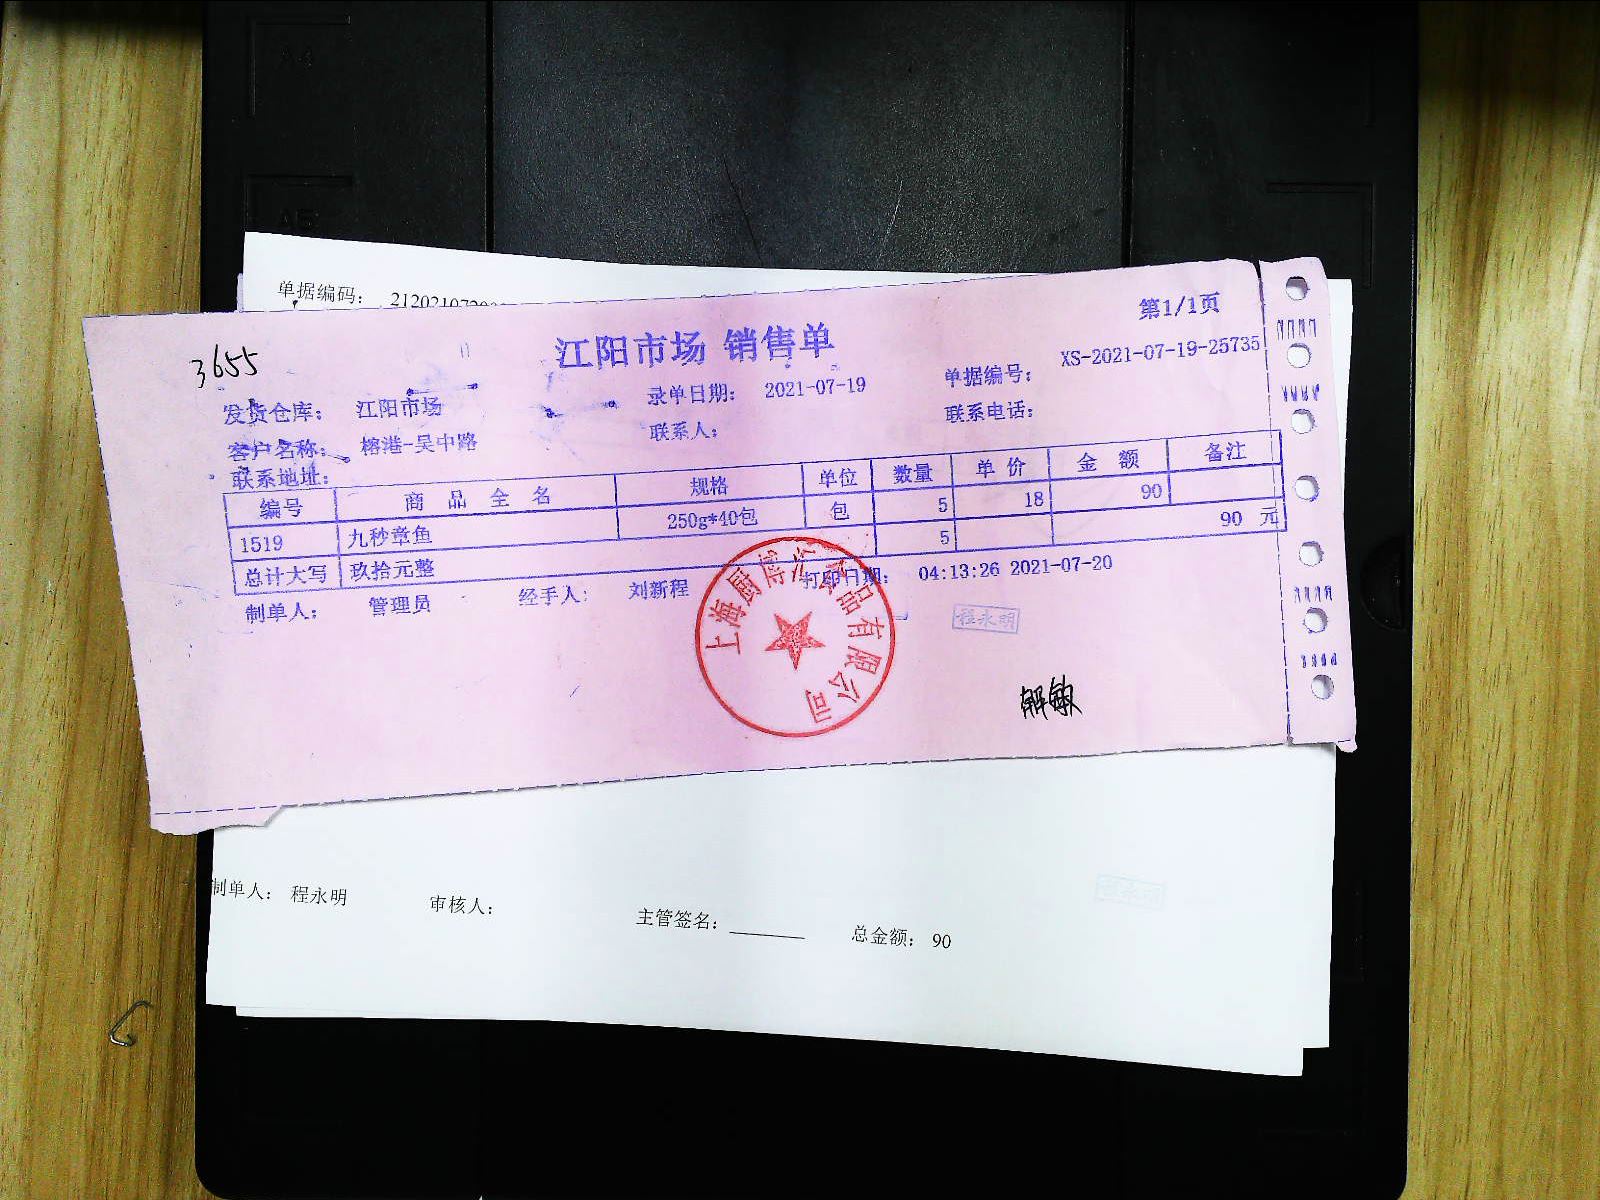 A4
A5
单据编码：
第1/1页
3655
江阳市场 销售单
XS-2021-07-19-25735
发货仓库： 江阳市场 录单日期： 2021-07-19 单据编号：
客户名称： 榕港-吴中路 联系人： 联系电话：
联系地址：
编号 商 品 全 名 规格 单位 数量 单 价 金 额 备注
1519 九秒章鱼 250g*40包 包 5 18 90
总计大写 玖拾元整 5 90 元
制单人： 管理员 经手人： 刘新程 打印日期： 04:13:26 2021-07-20
上海厨博 品有限公司
程永明
解敏
制单人： 程永明 审核人： 主管签名： 总金额： 90
程永明